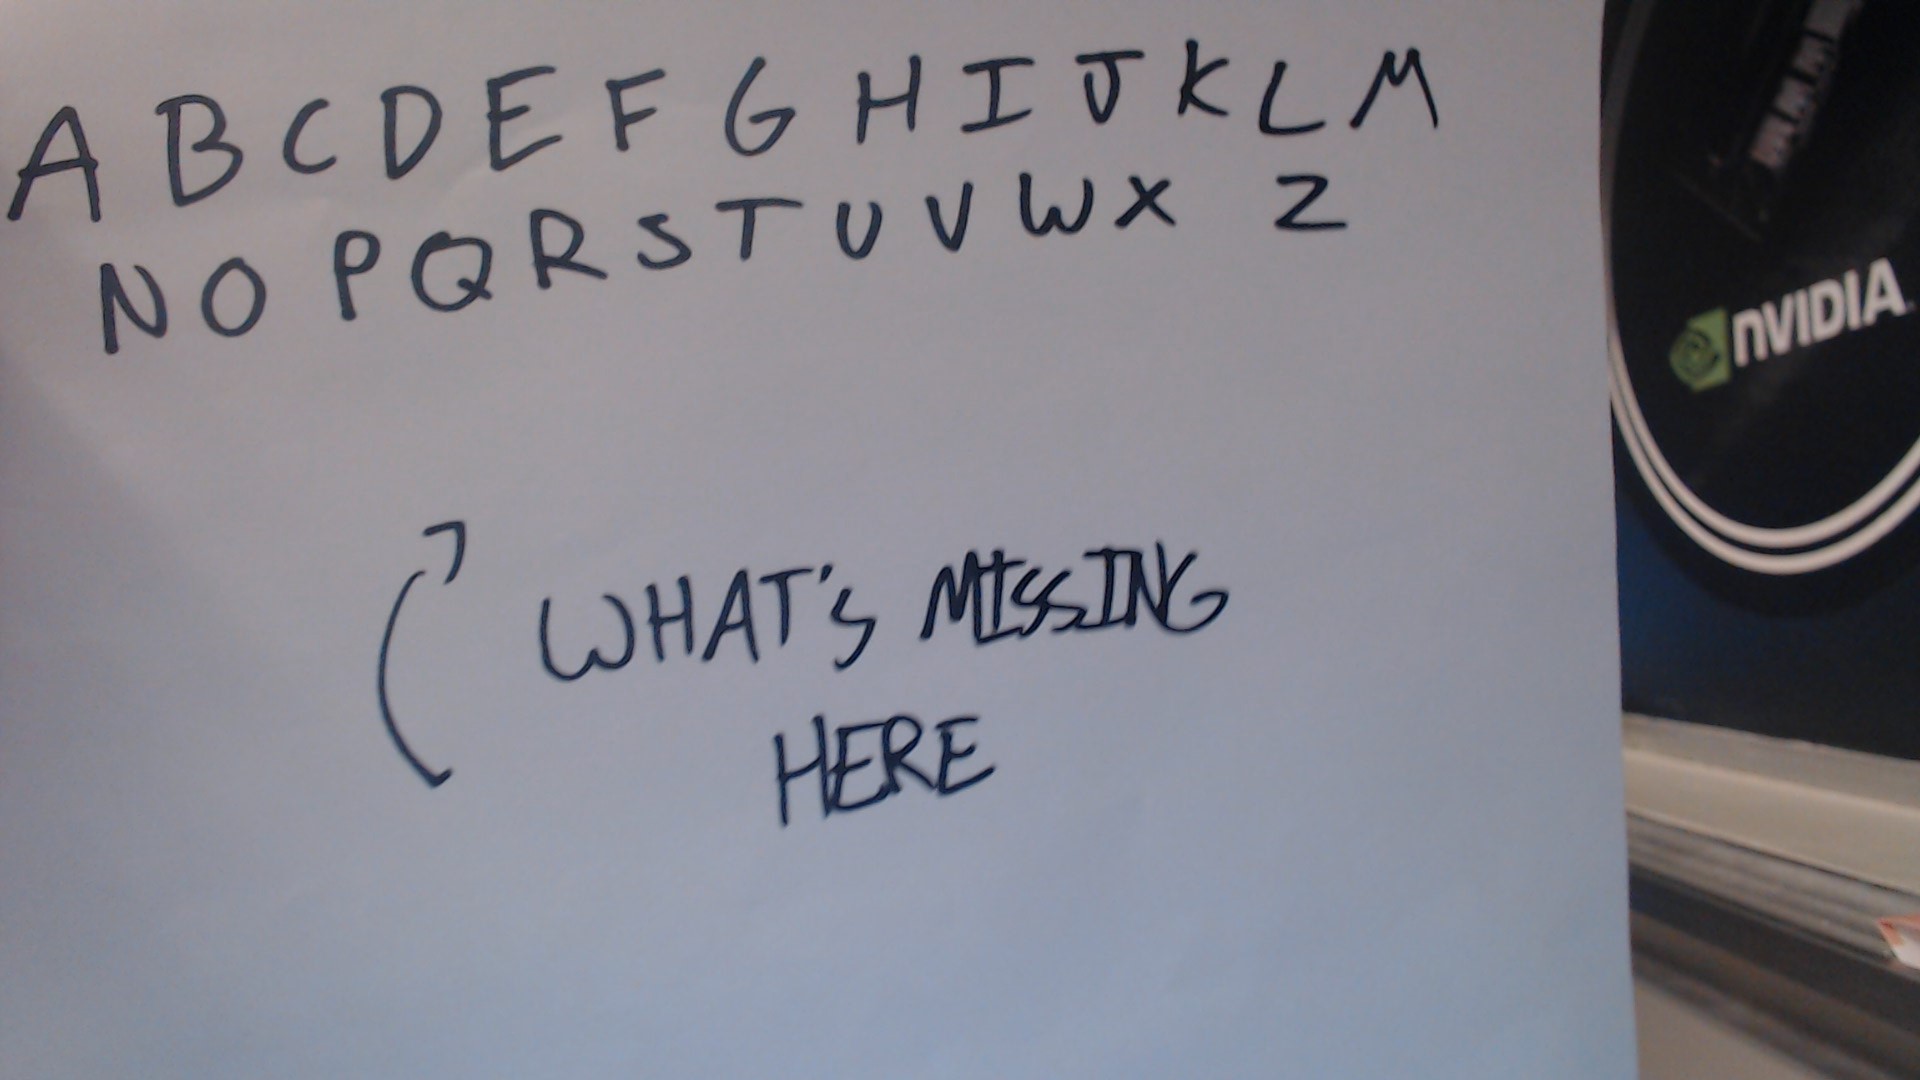 A B C D E F G H I J K L M
N O P Q R S T U V W X Z
WHAT'S MISSING
HERE
nVIDIA